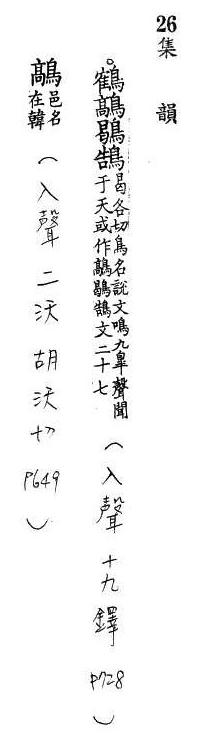 26 集 韻
。鶴鶮鵠曷各切鳥名說文鳴九皋聲聞
于天或作鶮鵠文二十七
(入聲 十九鐸 P728)
鶮邑名
在韓
(入聲二沃 胡沃切 P649)